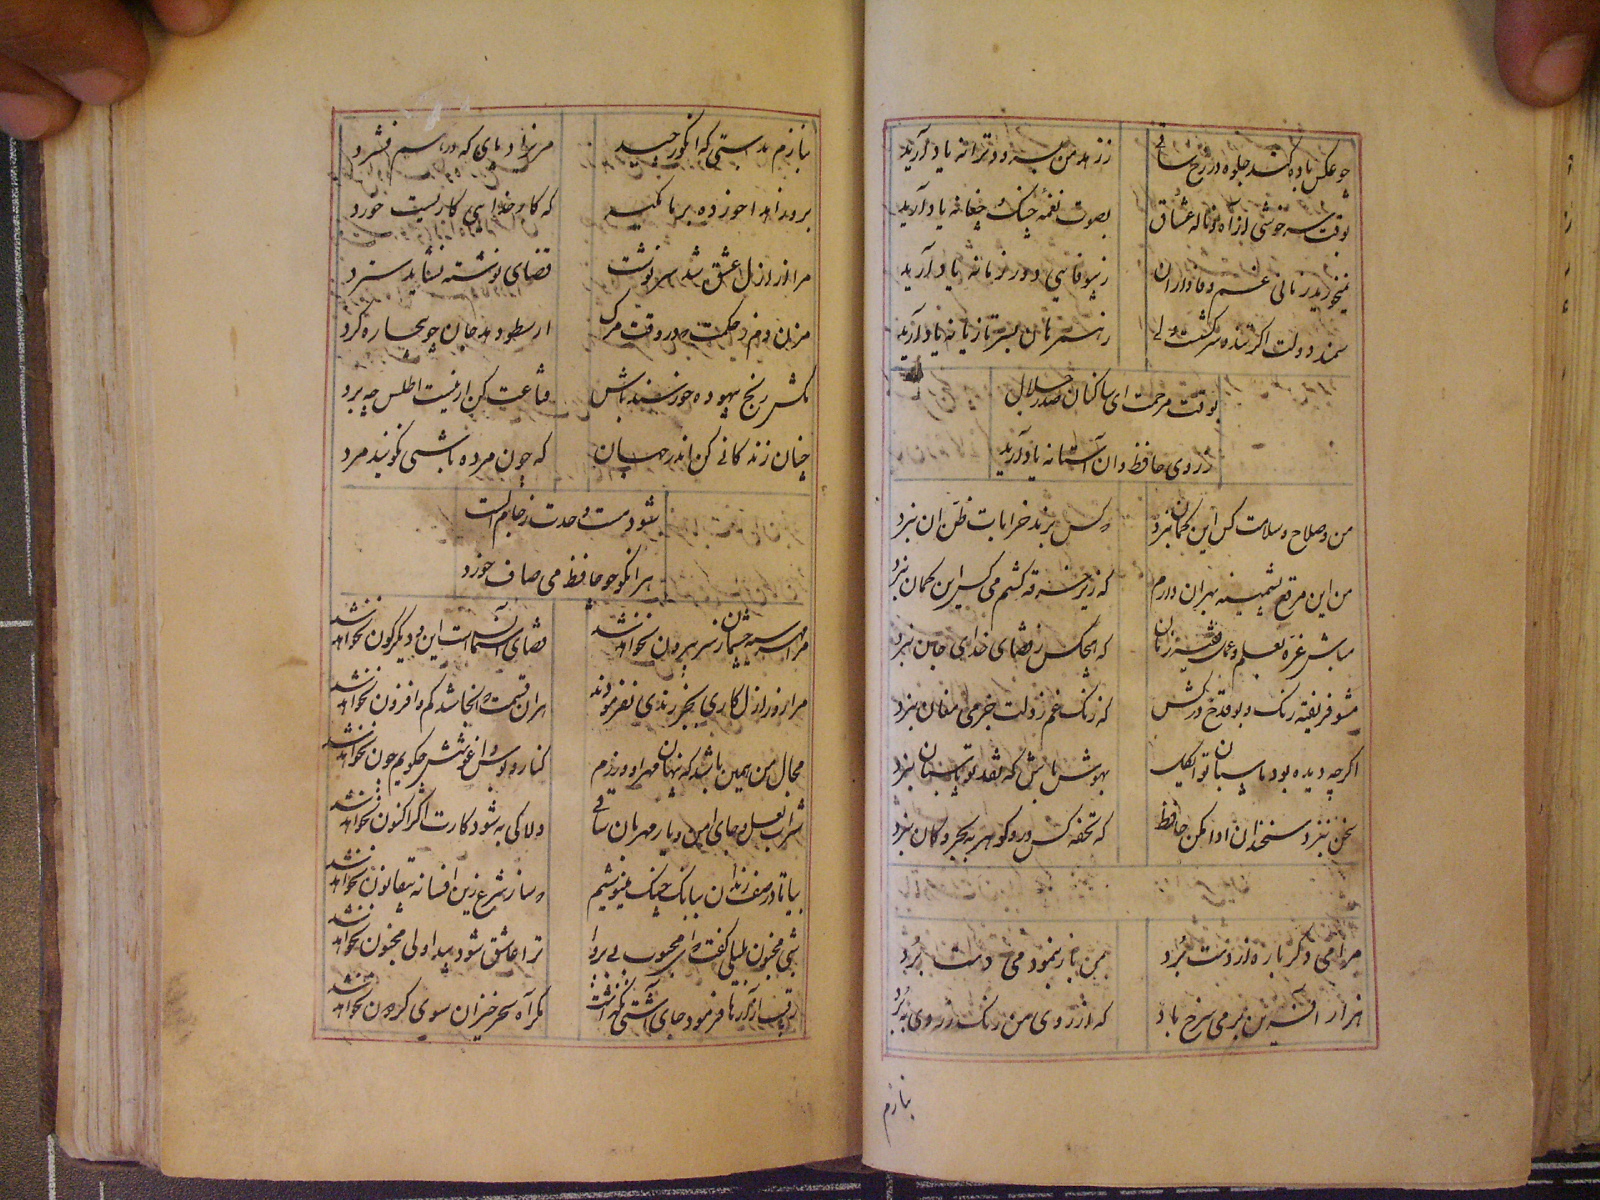 چو عکس باده کند جلوه در رخ ساقی ز زهد من بسرود و ترانه یاد آرید
بوقت سرخوشی از آه و ناله عشاق بصوت نغمه چنک و چغانه یاد آرید
نمیخورید زمانی غم وفاداران ز بیوفایی دور زمانه یاد آرید
سمند دولت اکر تند و سرکشست ولی ز همرهان بسر تازیانه یاد آرید
بوقت مرحمت ای ساکنان صدر جلال
ز روی حافظ و ان آستانه یاد آرید
من و صلاح و سلامت کس این کمان نبرد که کس برند خرابات ظن ان نبرد
من این مرقع پشمینه بهر ان دارم که زیر خرقه کشم می کس این کمان نبرد
مباش غره بعلم و عمل فقیه زمان که هیچکس ز قضای خدای جان نبرد
مشو فریفته رنک و بو قدح درکش که زنک غم ز دلت جز می مغان نبرد
اکرچه دیده بود پاسبان تو ای دل بهوش باش که نقد تو پاسبان نبرد
سخن بنزد سخندان ادا مکن حافظ که تحفه کس در و کوهر به بحر و کان نبرد
مرا می دکر باره از دست برد بمن باز بنمود می دست برد
هزار آفرین بر می سرخ باد که از روی من رنک زردی ببرد
بنازم
بنازم بدستی که انکور چید مریزاد پای که درهم فشرد
برو زاهدا خورده بر ما مکیر که کار خدایی نه کاریست خورد
مرا از ازل عشق شد سرنوشت قضای نوشته نشاید سترد
مزن دم ز حکمت که در وقت مرک ارسطو دهد جان چو بیچاره کرد
مکش رنج بیهوده خورسند باش قناعت کن ار نیست اطلس چه برد
چنان زندکانی کن اندر جهان که چون مرده باشی نکویند مرد
شود مست وحدت ز جام الست
هر انکو چو حافظ می صاف خورد
مرا مهر سیه چشمان ز سر بیرون نخواهد شد قضای آسمانست این و دیکرکون نخواهد شد
مرا روز ازل کاری بجز رندی نفرمودند هر ان قسمت که انجا شد کم و افزون نخواهد شد
مجال من همین باشد که پنهان مهر او ورزم کنار و بوس و اغوشش چکویم چون نخواهد شد
شراب لعل و جای امن و یار مهربان ساقی دلا کی به شود کارت اکر اکنون نخواهد شد
بیا تا در صف رندان ببانک چنک مینوشیم که ساز شرع زین افسانه بیقانون نخواهد شد
شبی مجنون بلیلی کفت کای محبوب بی پروا ترا عاشق شود پیدا ولی مجنون نخواهد شد
رقیب آزارها فرمود جای آشتی نکذاشت مکر آه سحرخیزان سوی کردون نخواهد شد